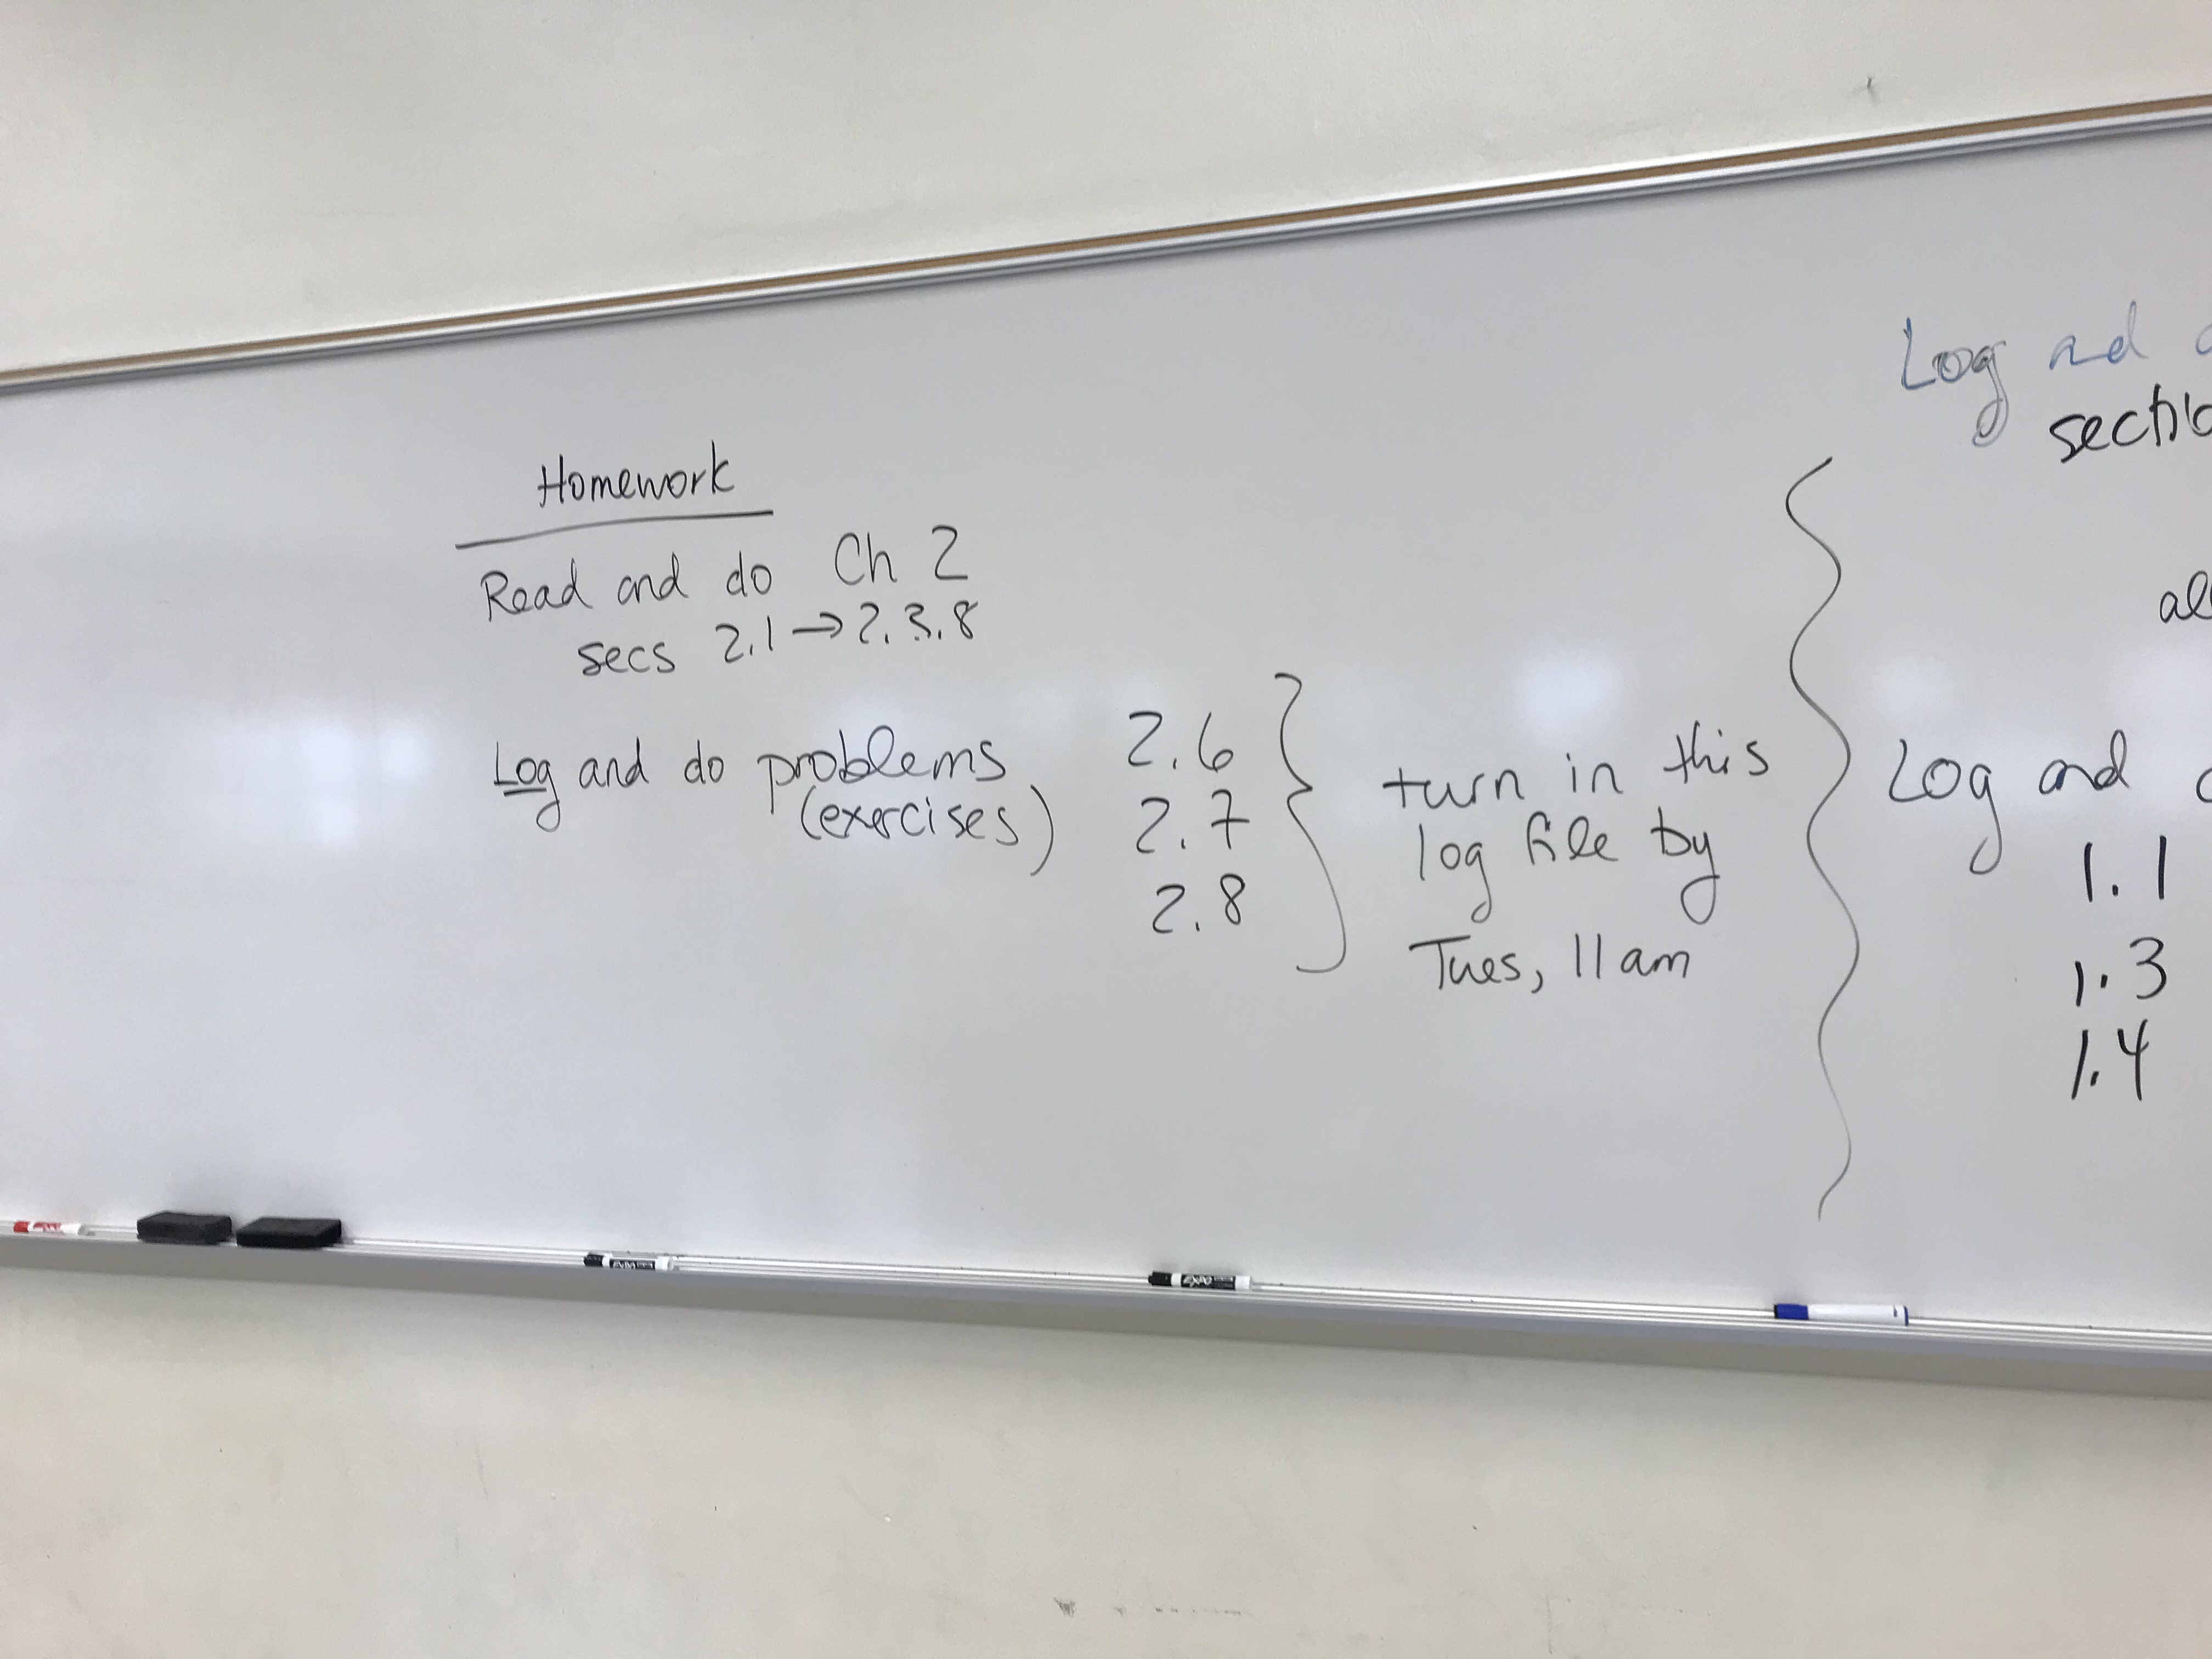 Homework
Read and do Ch 2
secs 2.1 → 2.3.8
Log and do problems
(exercises)
2.6
2.7
2.8
turn in this
log file by
Tues, 11am
Log and
Log and
1.1
1.3
1.4
EXPO